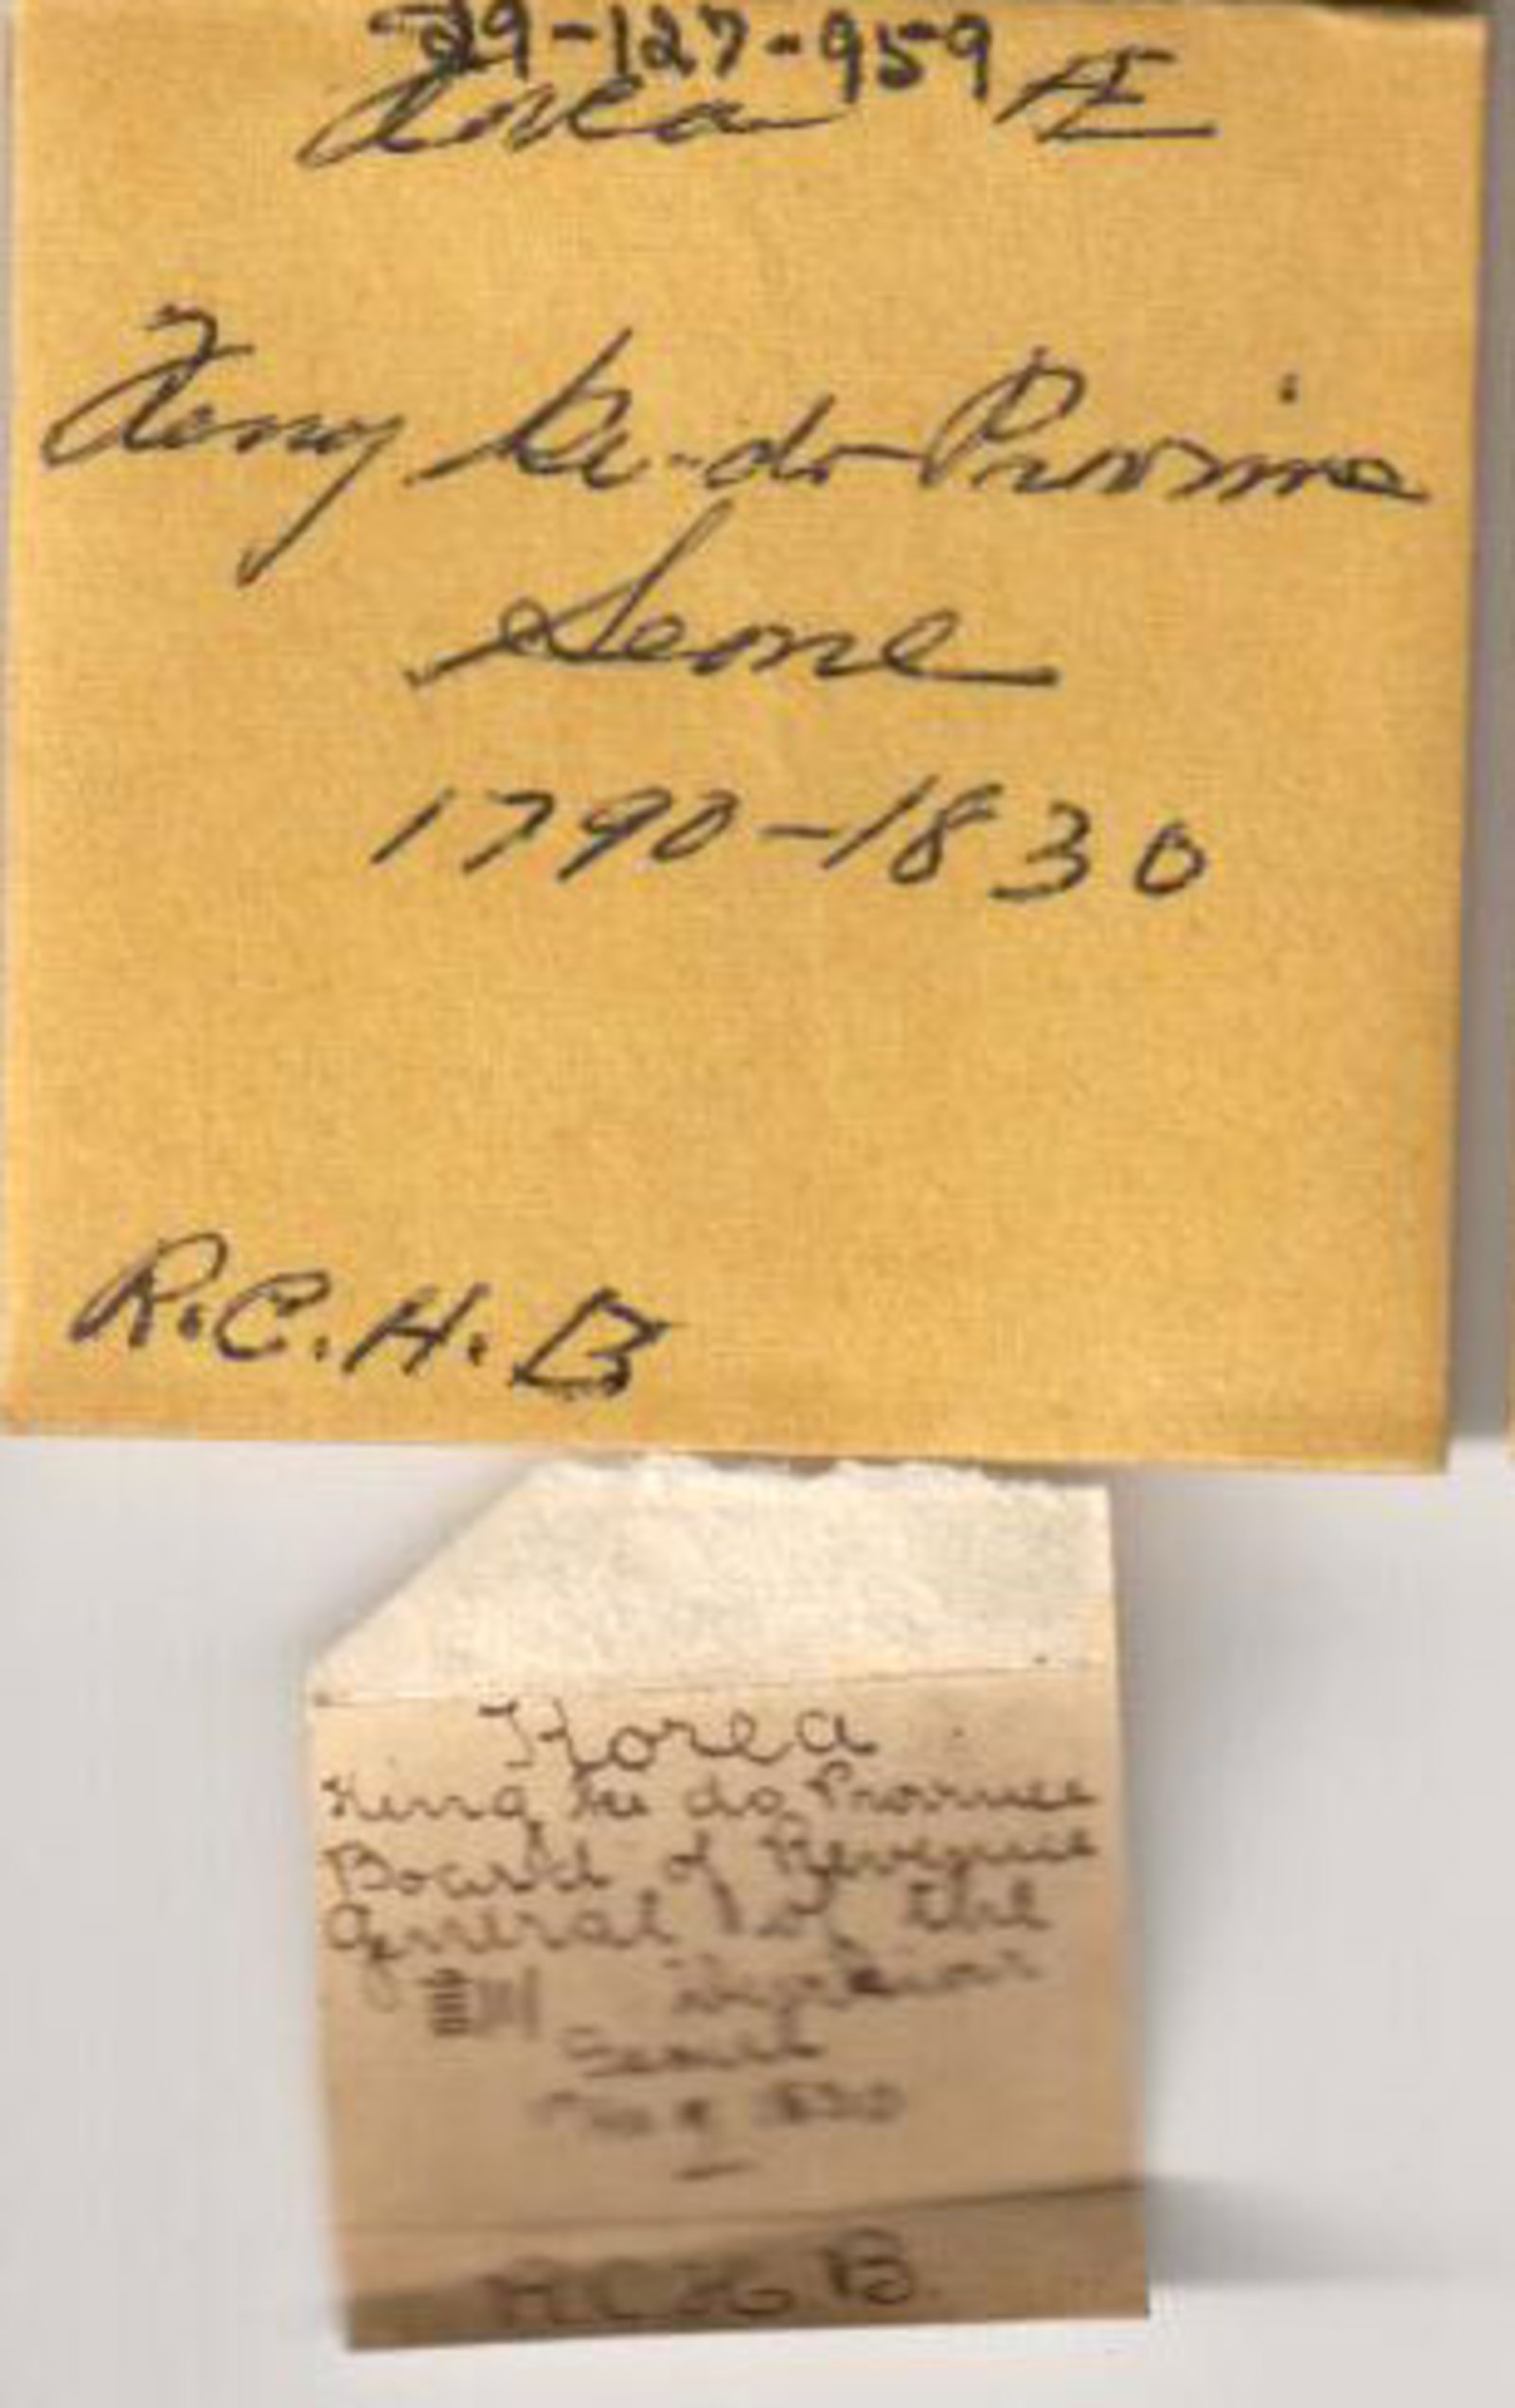 29-127-959
Korea Æ
King Ki-do Province
Seoul
1790-1830
R.C.H.B
Korea
King ki do Province
Board of Revenue
General of the
Seoul
1830
R.C.H. B.